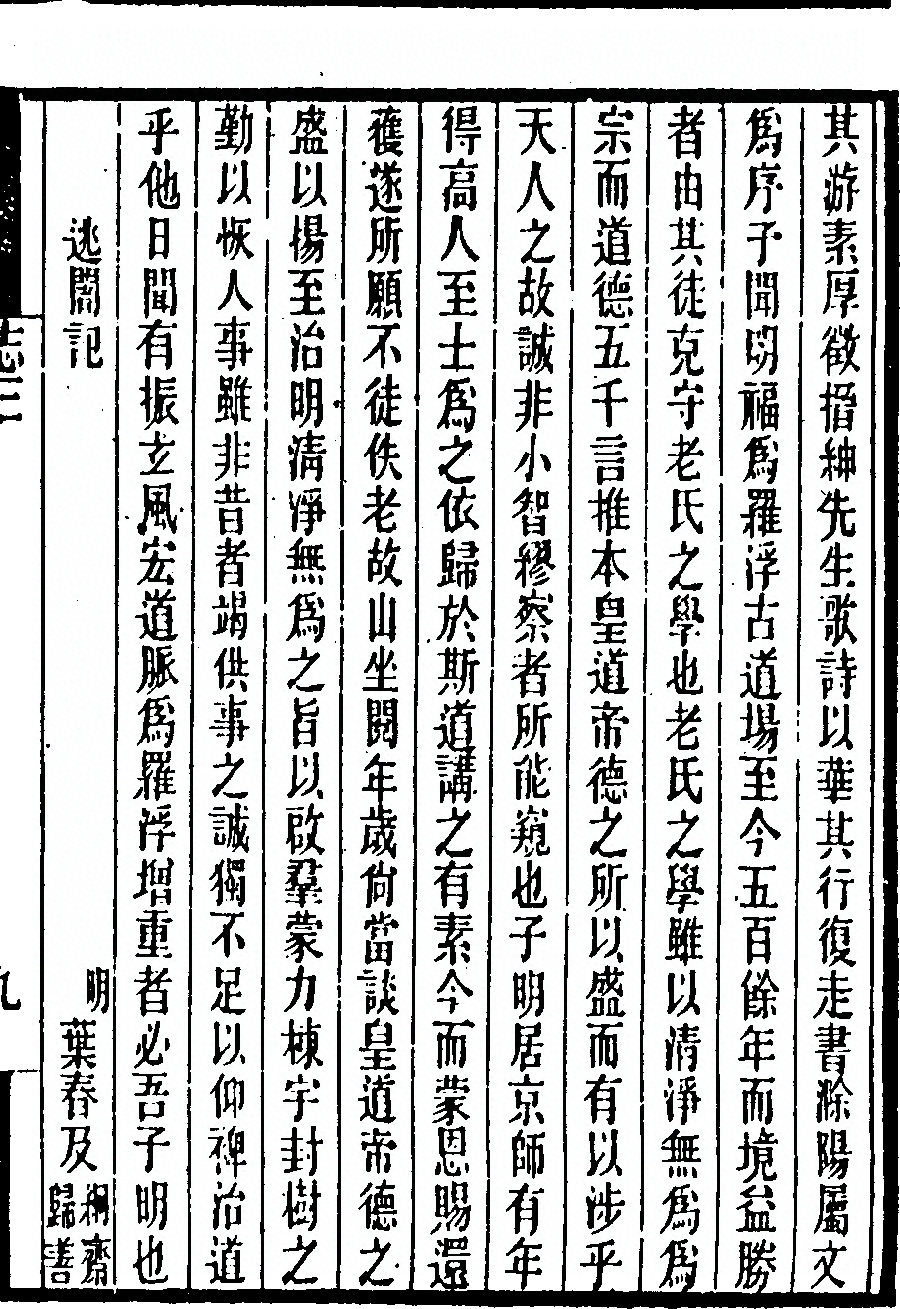 其游素厚徵搢紳先生歌詩以華其行復走書滁陽屬文
爲序予聞明福爲羅浮古道場至今五百餘年而境益勝
者由其徒克守老氏之學也老氏之學雖以清淨無爲爲
宗而道德五千言推本皇道帝德之所以盛而有以涉乎
天人之故誠非小智繆察者所能窺也子明居京師有年
得高人至士爲之依歸於斯道講之有素今而蒙恩賜還
獲遂所願不徒佚老故山坐閱年歲尙當談皇道帝德之
盛以揚至治明清淨無爲之旨以啟羣蒙力棟宇封樹之
勤以恢人事雖非昔者竭供事之誠獨不足以仰裨治道
乎他日聞有振玄風宏道脈爲羅浮增重者必吾子明也
逃闇記 明葉春及絅齋歸善
志三
九